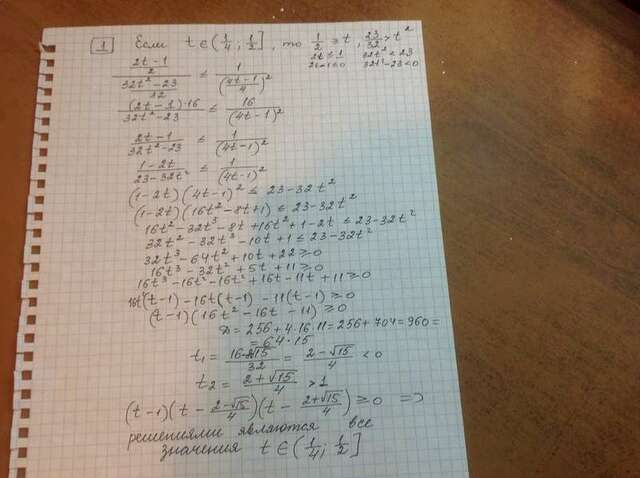 1 Если t ∈ (1/4; 1/2], то 1/2 ≥ t, 23/32 > t²
2t ≤ 1 32t² < 23
2t-1 ≤ 0 32t²-23 < 0
((2t-1)/2)/((32t²-23)/32) ≤ 1/((4t-1)/4)²
((2t-1)·16)/(32t²-23) ≤ 16/(4t-1)²
(2t-1)/(32t²-23) ≤ 1/(4t-1)²
(1-2t)/(23-32t²) ≤ 1/(4t-1)²
(1-2t)(4t-1)² ≤ 23-32t²
(1-2t)(16t²-8t+1) ≤ 23-32t²
16t²-32t³-8t+16t²+1-2t ≤ 23-32t²
32t²-32t³-10t+1 ≤ 23-32t²
32t³-64t²+10t+22 ≥ 0
16t³-32t²+5t+11 ≥ 0
16t³-16t²-16t²+16t-11t+11 ≥ 0
16t²(t-1)-16t(t-1)-11(t-1) ≥ 0
(t-1)(16t²-16t-11) ≥ 0
D = 256+4·16·11 = 256+704 = 960 =
= 64·15
t₁ = (16-8√15)/32 = (2-√15)/4 < 0
t₂ = (2+√15)/4 > 1
(t-1)(t-(2-√15)/4)(t-(2+√15)/4) ≥ 0 =>
решениями являются все
значения t ∈ (1/4; 1/2]